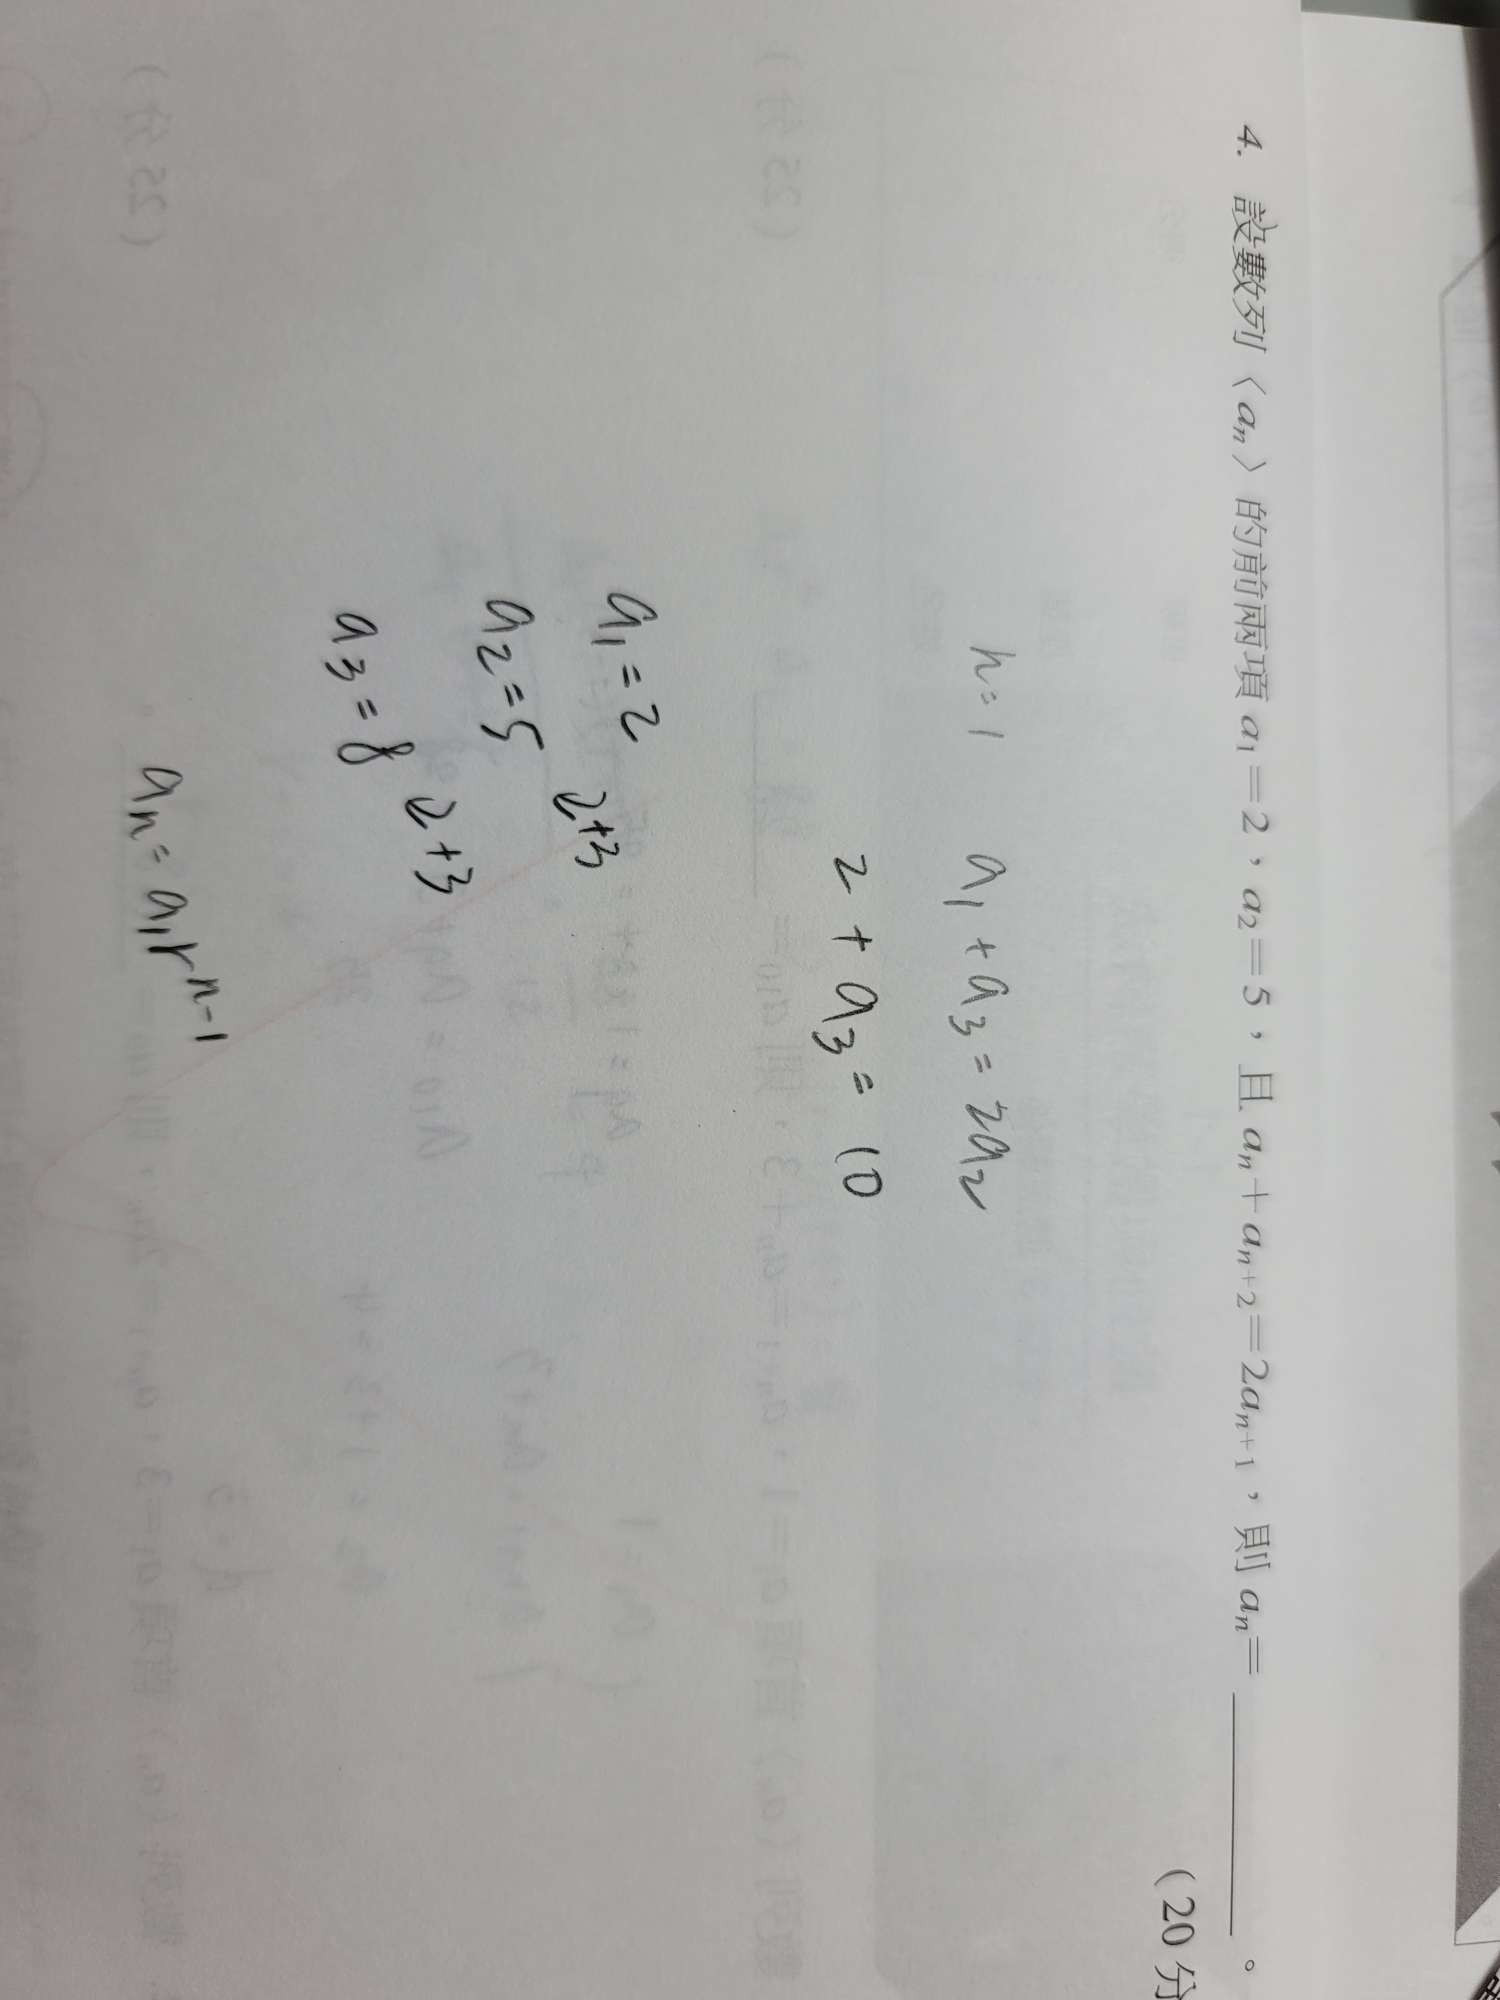 4. 設數列〈aₙ〉的前兩項 a₁=2，a₂=5，且 aₙ+aₙ₊₂=2aₙ₊₁，則 aₙ=________。
(20分
n=1 a₁+a₃=2a₂
2+a₃=10
a₁=2
2+3
a₂=5
2+3
a₃=8
aₙ=a₁rⁿ⁻¹